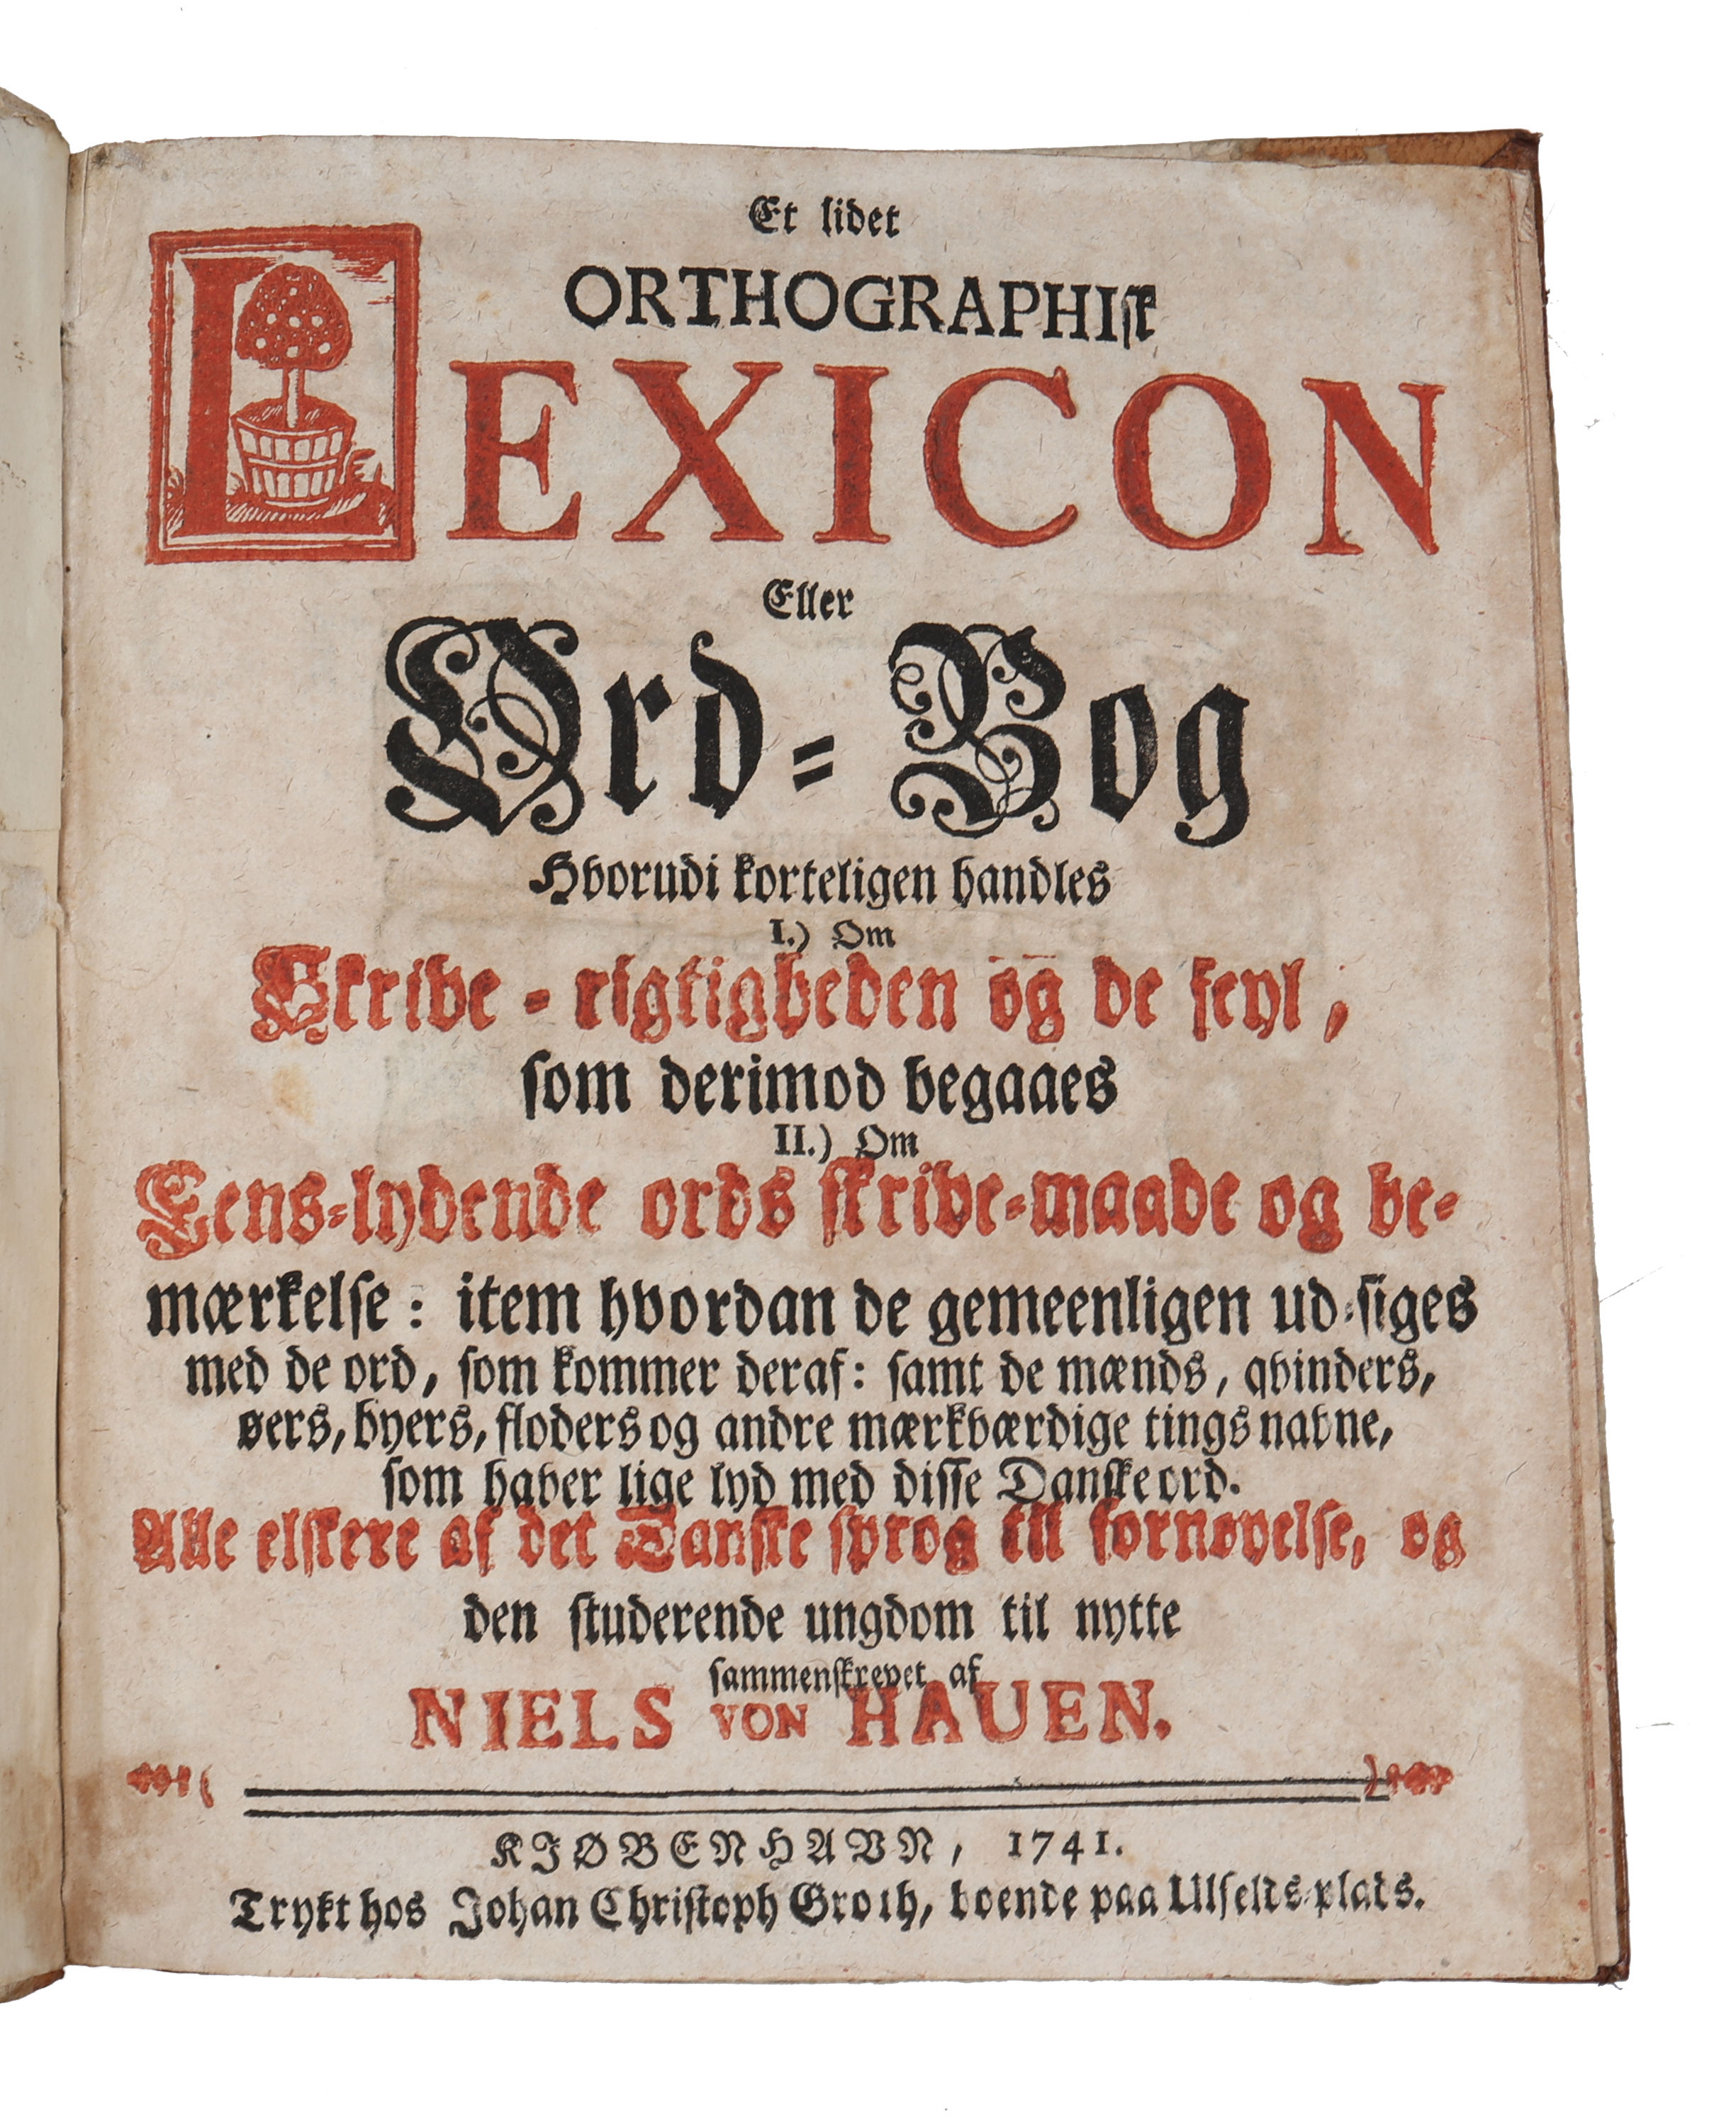 Et lidet
ORTHOGRAPHIsk
LEXICON
Eller
Ord-Bog
Hvorudi korteligen handles
I.) Om
Skrive-rigtigheden og de feyl,
som derimod begaaes
II.) Om
Eens-lydende ords skrive-maade og be-
mærkelse: item hvordan de gemeenligen ud-siges
med de ord, som kommer deraf: samt de mænds, qvinders,
øers, byers, floders og andre mærkværdige tings navne,
som haver lige lyd med disse Danske ord.
Alle elskere af det Danske sprog till fornøyelse, og
den studerende ungdom til nytte
sammenskrevet af
NIELS VON HAUEN.
KIØBENHAVN, 1741.
Trykt hos Johan Christoph Groth, boende paa Ulfelds-plads.